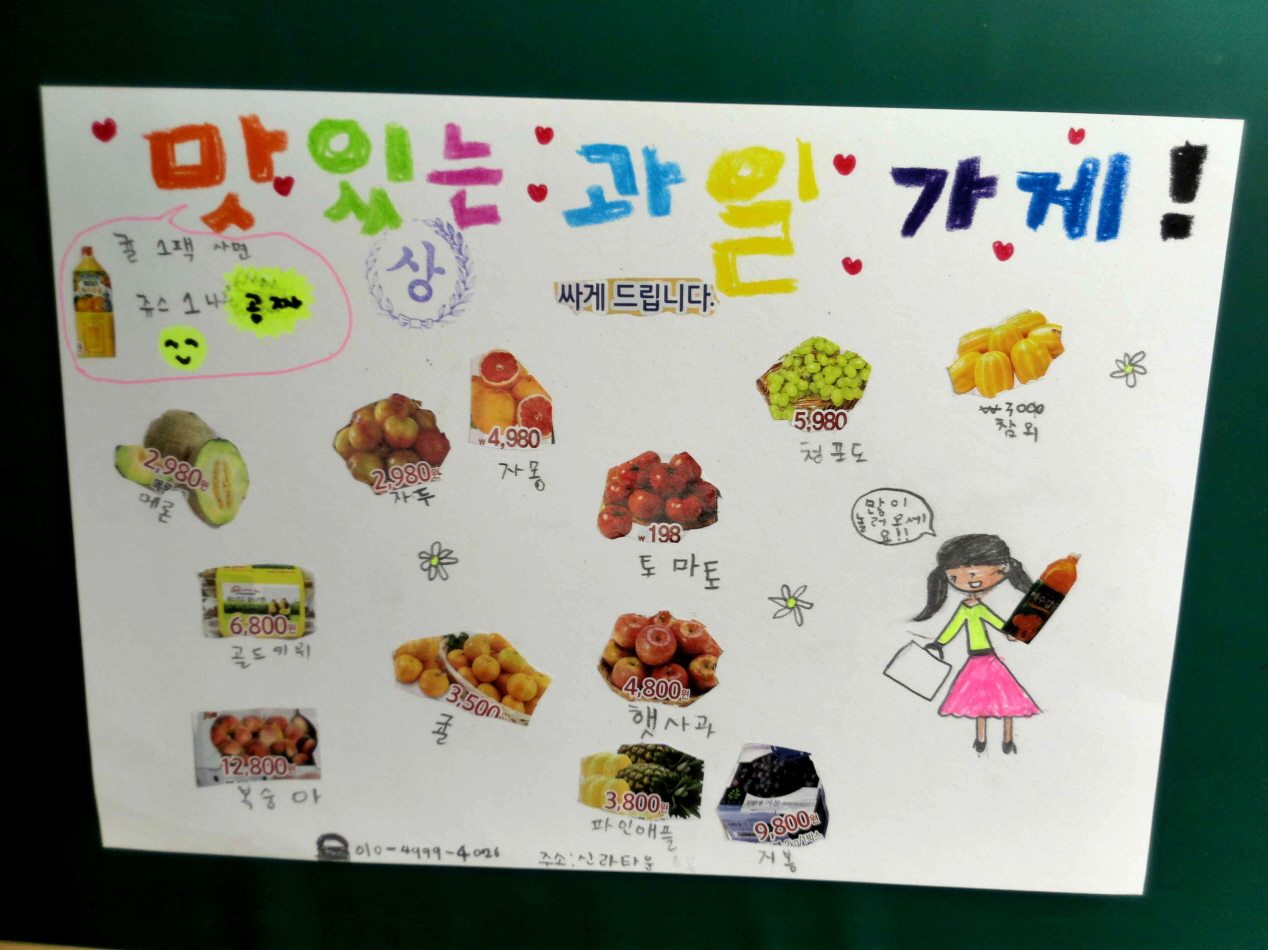 맛있는 과일 가게!
귤 1팩 사면
쥬스 1나 공짜
상
싸게 드립니다.
₩4,980
자몽
5,980
청포도
₩3000
참외
2,980원
메론
2,980원
자두
₩198
토마토
많이
놀러오세
요!!
6,800원
골드키위
3,500원
귤
4,800원
햇사과
12,800원
복숭아
3,800원
파인애플
9,800원
거봉
010-4999-4026
주소:신라타운